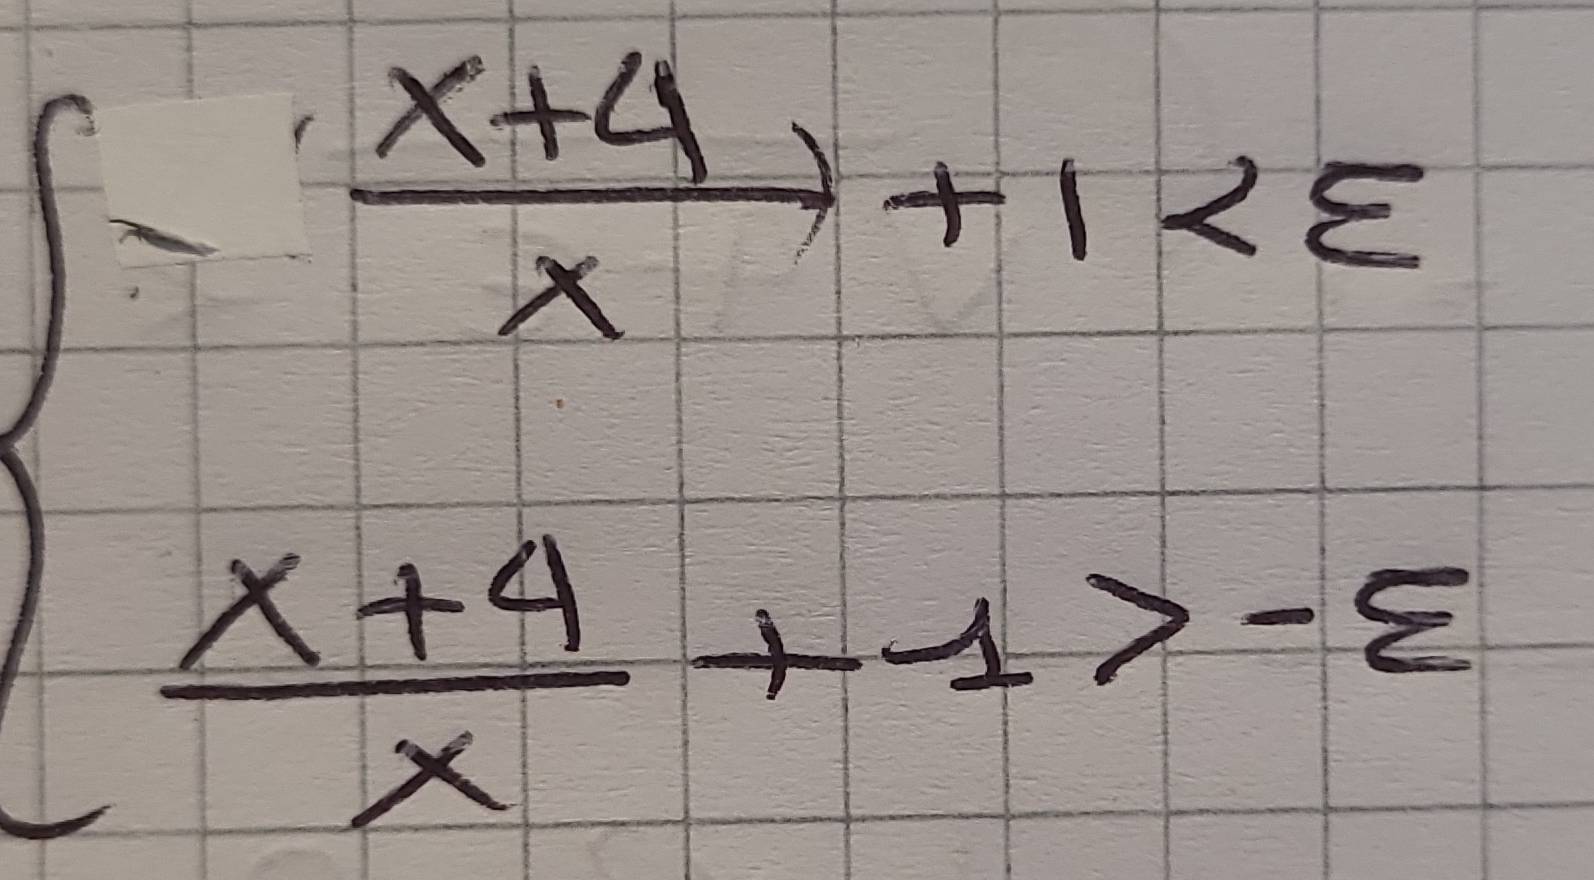 x+4
/x ) + 1 < ε
x+4
/x + 1 > - ε